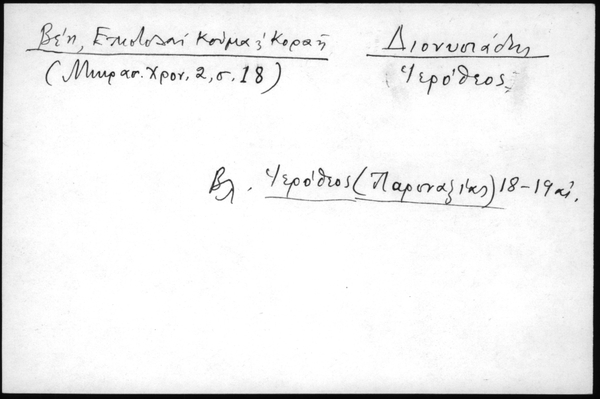 Βέη, Επιστολαί Κούμα & Κοραή
(Μικρασ. Χρον. 2, σ. 18)
Διονυσιάδης
Ἱερόθεος
Βλ. Ἱερόθεος (Παροναξίας) 18-19 αἰ.